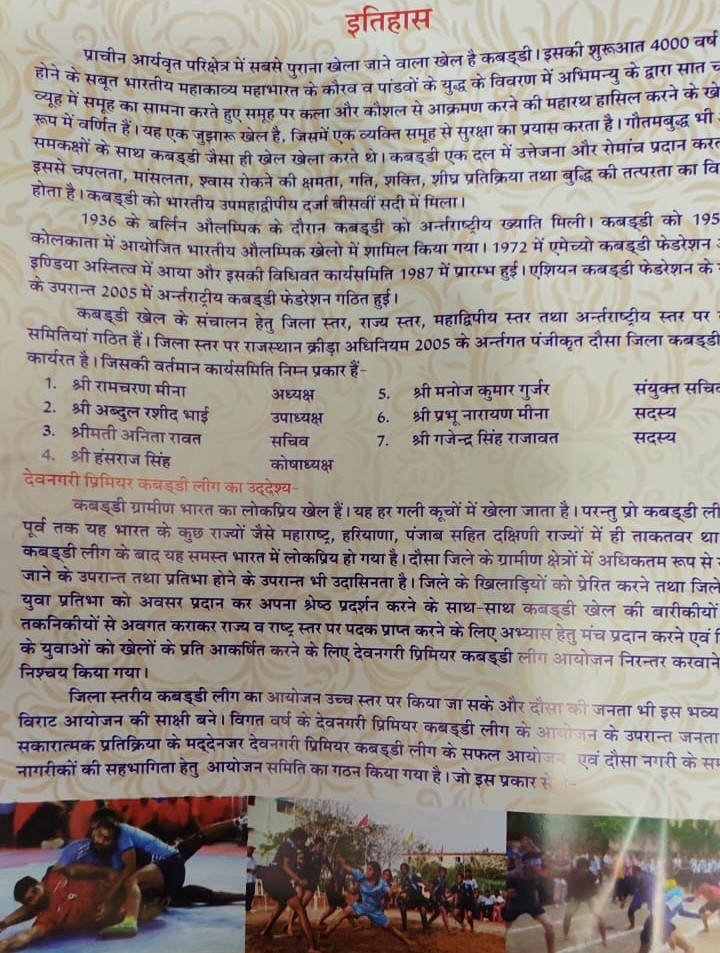 इतिहास
प्राचीन आर्यवृत परिक्षेत्र में सबसे पुराना खेला जाने वाला खेल है कबड्डी। इसकी शुरूआत 4000 वर्ष
होने के सबूत भारतीय महाकाव्य महाभारत के कौरव व पांडवों के युद्ध के विवरण में अभिमन्यु के द्वारा सात
व्यूह में समूह का सामना करते हुए समूह पर कला और कौशल से आक्रमण करने की महारथ हासिल करने के
रूप में वर्णित हैं। यह एक जुझारू खेल है, जिसमें एक व्यक्ति समूह से सुरक्षा का प्रयास करता है। गौतमबुद्ध भी
समकक्षों के साथ कबड्डी जैसा ही खेल खेला करते थे। कबड्डी एक दल में उत्तेजना और रोमांच प्रदान
इससे चपलता, मांसलता, श्वास रोकने की क्षमता, गति, शक्ति, शीघ्र प्रतिक्रिया तथा बुद्धि की तत्परता का
होता है। कबड्डी को भारतीय उपमहाद्वीपीय दर्जा बीसवीं सदी में मिला।
1936 के बर्लिन औलम्पिक के दौरान कबड्डी को अर्न्तराष्ट्रीय ख्याति मिली। कबड्डी को 195
कोलकाता में आयोजित भारतीय औलम्पिक खेलो में शामिल किया गया। 1972 में एमेच्यो कबड्डी फेडरेशन
इण्डिया अस्तित्व में आया और इसकी विधिवत कार्यसमिति 1987 में प्रारम्भ हुई। एशियन कबड्डी फेडरेशन के
के उपरान्त 2005 में अर्न्तराट्रीय कबड्डी फेडरेशन गठित हुई।
कबड्डी खेल के संचालन हेतु जिला स्तर, राज्य स्तर, महाद्विपीय स्तर तथा अर्न्तराष्ट्रीय स्तर पर
समितियां गठित हैं। जिला स्तर पर राजस्थान क्रीड़ा अधिनियम 2005 के अर्न्तगत पंजीकृत दौसा जिला कबड्डी
कार्यरत है। जिसकी वर्तमान कार्यसमिति निम्न प्रकार हैं-
1. श्री रामचरण मीना अध्यक्ष 5. श्री मनोज कुमार गुर्जर संयुक्त सचिव
2. श्री अब्दुल रशीद भाई उपाध्यक्ष 6. श्री प्रभू नारायण मीना सदस्य
3. श्रीमती अनिता रावत सचिव 7. श्री गजेन्द्र सिंह राजावत सदस्य
4. श्री हंसराज सिंह कोषाध्यक्ष
देवनगरी प्रिमियर कबड्डी लीग का उद्देश्य-
कबड्डी ग्रामीण भारत का लोकप्रिय खेल हैं। यह हर गली कूचों में खेला जाता है। परन्तु प्रो कबड्डी ली
पूर्व तक यह भारत के कुछ राज्यों जैसे महाराष्ट्र, हरियाणा, पंजाब सहित दक्षिणी राज्यों में ही ताकतवर था
कबड्डी लीग के बाद यह समस्त भारत में लोकप्रिय हो गया है। दौसा जिले के ग्रामीण क्षेत्रों में अधिकतम रूप से
जाने के उपरान्त तथा प्रतिभा होने के उपरान्त भी उदासिनता है। जिले के खिलाड़ियों को प्रेरित करने तथा जिले
युवा प्रतिभा को अवसर प्रदान कर अपना श्रेष्ठ प्रदर्शन करने के साथ-साथ कबड्डी खेल की बारीकीयों
तकनिकीयों से अवगत कराकर राज्य व राष्ट्र स्तर पर पदक प्राप्त करने के लिए अभ्यास हेतु मंच प्रदान करने एवं
के युवाओं को खेलों के प्रति आकर्षित करने के लिए देवनगरी प्रिमियर कबड्डी लीग आयोजन निरन्तर करवाने
निश्चय किया गया।
जिला स्तरीय कबड्डी लीग का आयोजन उच्च स्तर पर किया जा सके और दौसा की जनता भी इस भव्य
विराट आयोजन की साक्षी बने। विगत वर्ष के देवनगरी प्रिमियर कबड्डी लीग के आयोजन के उपरान्त जनता
सकारात्मक प्रतिक्रिया के मद्देनजर देवनगरी प्रिमियर कबड्डी लीग के सफल आयोजन एवं दौसा नगरी के
नागरीकों की सहभागिता हेतु आयोजन समिति का गठन किया गया है। जो इस प्रकार से